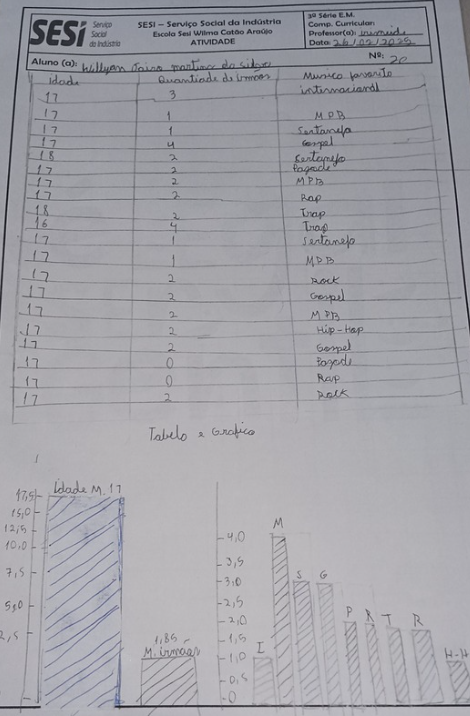 SESI Serviço Social da Indústria
SESI – Serviço Social da Indústria
Escola Sesi Wilma Catão Araújo
ATIVIDADE
3ª Série E.M.
Comp. Curricular:
Professor(a):
Data: 26/02/2025
Aluno (a): Jairo da silva Nº: 20
Idade Quantiade de irmaos Musica favorita
17 3 internacional
17 1 MPB
17 1 Sertanejo
17 4 Gospel
18 2 Sertanejo
17 2 Pagode
17 2 MPB
17 2 Rap
18 2 Trap
16 4 Trap
17 1 Sertanejo
17 1 MPB
17 2 Rock
17 2 Gospel
17 2 MPB
17 2 Hip-Hop
17 2 Gospel
17 0 Pagode
17 0 Rap
17 2 Rock
Tabela e Grafico
Idade M. 17
17,5
15,0
12,5
10,0
7,5
5,0
2,5
1,85
M. irmaos
4,0
3,5
3,0
2,5
2,0
1,5
1,0
0,5
0
I M S G P R T R H-H